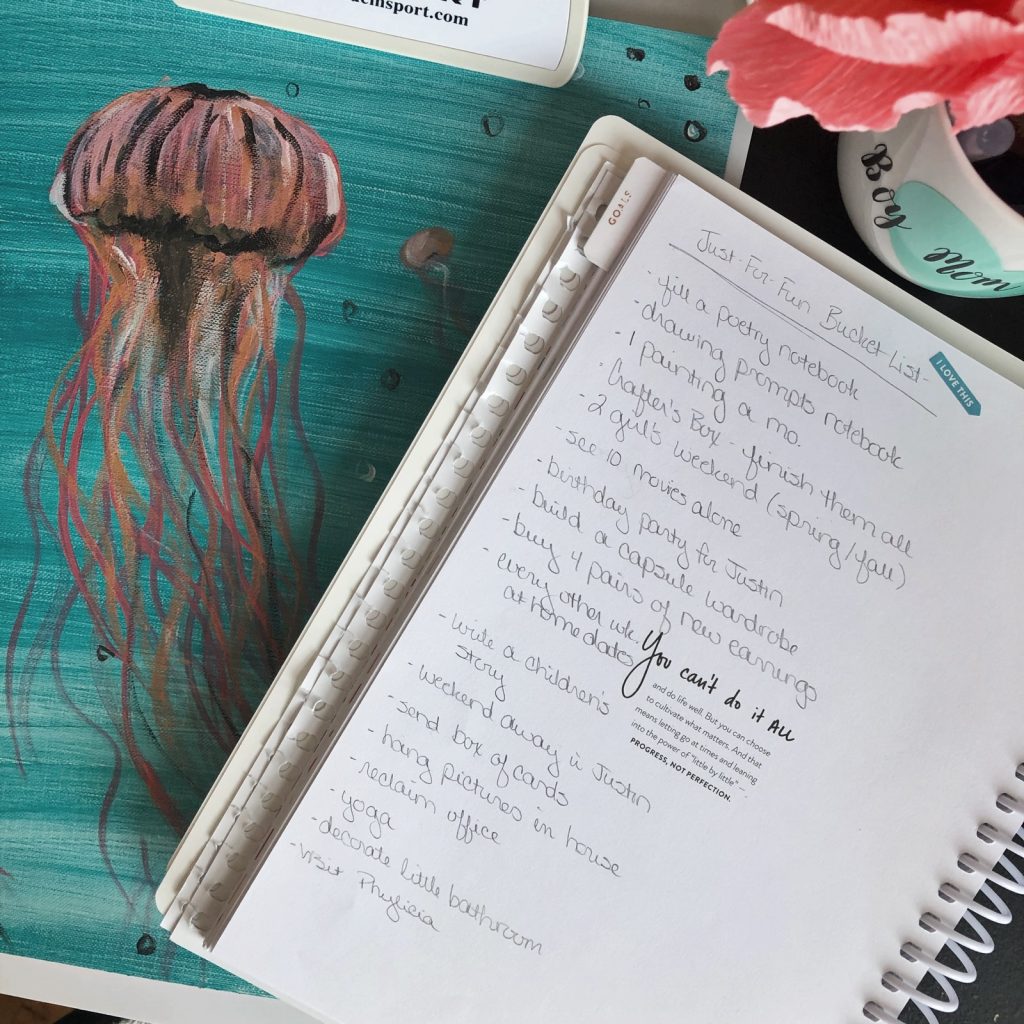 demsport.com
GOALS
Boy
Mom
Just-For-Fun Bucket List-
I LOVE THIS
- fill a poetry notebook
- drawing prompts notebook
- 1 painting a mo.
- Crafter's Box - finish them all
- 2 girl's weekend (spring/fall)
- see 10 movies alone
- birthday party for Justin
- build a capsule wardrobe
- buy 4 pairs of new earrings
- every other wk.
at home dates
- write a children's
story
- weekend away w Justin
- send box of cards
- hang pictures in house
- reclaim office
- yoga
- decorate little bathroom
- visit Phylicia
You can't do it ALL
and do life well. But you can choose
to cultivate what matters. And that
means letting go at times and leaning
into the power of "little by little" –
PROGRESS, NOT PERFECTION.